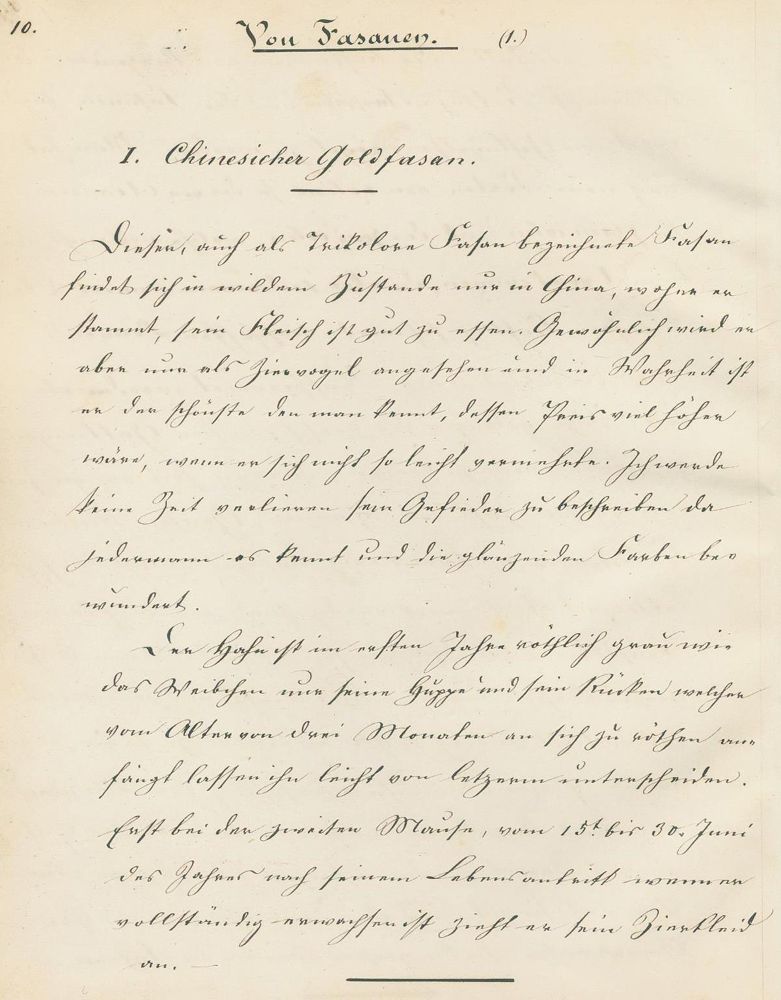 10.
Von Fasanen. (1.)
I. Chinesicher Goldfasan.
Dieser, auch als Trikolore Fasan bezeichnete Fasan
findet sich in wildem Zustande nur in China, woher er
stammt, sein Fleisch ist gut zu essen. Gewöhnlich wird er
aber nur als Ziervogel angesehen und in Wahrheit ist
er der schönste den man kennt, dessen Preis viel höher
wäre, wenn er sich nicht so leicht vermehrte. Ich werde
keine Zeit verlieren sein Gefieder zu beschreiben da
jedermann es kennt und die glänzenden Farben be-
wundert.
Der Hahn ist im ersten Jahre röthlich grau wie
das Weibchen nur seine Huppe und sein Rücken welcher
vom Alter von drei Monaten an sich zu röthen an-
fängt lassen ihn leicht von letzerm unterscheiden.
Erst bei der zweiten Mause, vom 15t bis 30. Juni
des Jahres nach seinem Lebensantritt wenn er
vollständig erwachsen ist zieht er sein Zierkleid
an. —